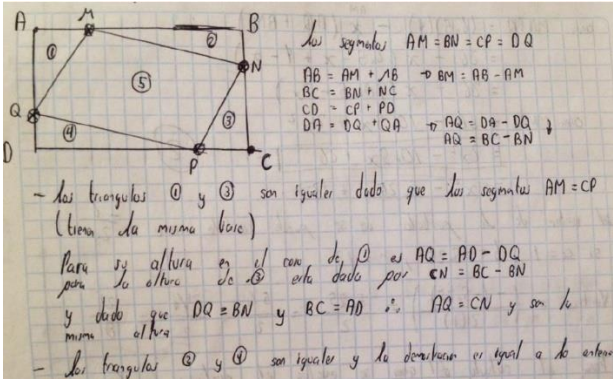 A M B
① ②
Los segmentos AM = BN = CP = DQ
N
AB = AM + MB → BM = AB - AM
⑤
BC = BN + NC
CD = CP + PD
Q ③
DA = DQ + QA → AQ = DA - DQ
④
AQ = BC - BN
D P C
- Los triangulos ① y ③ son iguales dado que los segmentos AM = CP
(tienen la misma base)
Para su altura en el caso de ① es AQ = AD - DQ
para la altura de ③ esta dada por CN = BC - BN
y dado que DQ = BN y BC = AD ∴ AQ = CN y son la
misma altura
- Los triangulos ② y ④ son iguales y la demostracion es igual a la